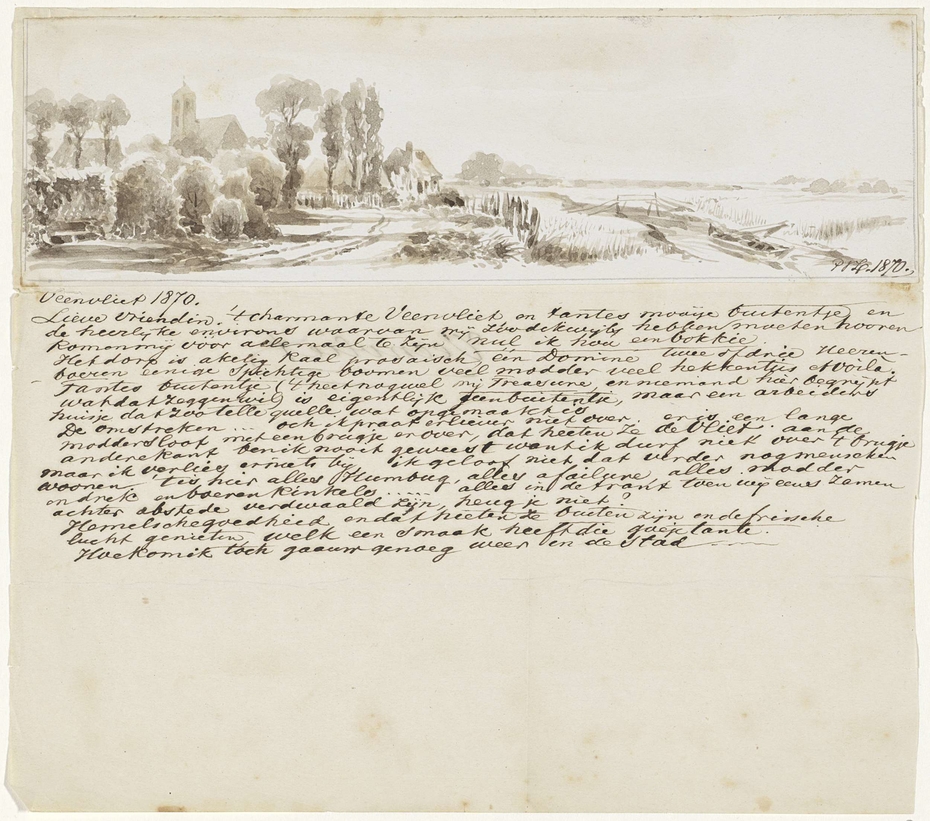 1870.
Veenvliet 1870.
Lieve Vriendin. 't charmante Veenvliet en tantes mooije buitentje, en
de heerlijke environs waarvan wij zoo dikwijls hebben moeten hooren
Romannij voor allemaal te zijn nul ik hou een bokkie.
Het dorp is akelig kaal prosaisch, een Domine twee of drie Heeren-
boeren eenige spichtige boomen veel modder veel hekkentjes et voila.
Tantes buitentje ('t heet nog wel mij Treasure, en niemand hier begrijpt
wat dat zeggen wil) is eigentlijk geen buitentje, maar een arbeiders
huisje dat zoo telle quelle wat opgemaakt is
De omstreken ... och ik praat er liever niet over, er is een lange
moddersloot met een brugje er over, dat heeten ze de Vliet. aan de
anderekant ben ik nooit geweest want ik durf niet over 't brugje
maar ik verlies er niets bij ik geloof niet dat verder nog menschen
woonen. tis hier alles Humbug, alles failure, alles modder
en drek en boeren kinkels ..... alles in de trant toen wij eens zamen
achter abstede verdwaald zijn, heug je niet?
Hemelsche goedheid, en dat heeten ze buiten zijn en de frissche
lucht genieten, welk een smaak heeft die goeje tante.
Hoe kom ik toch gaauw genoeg weer in de Stad